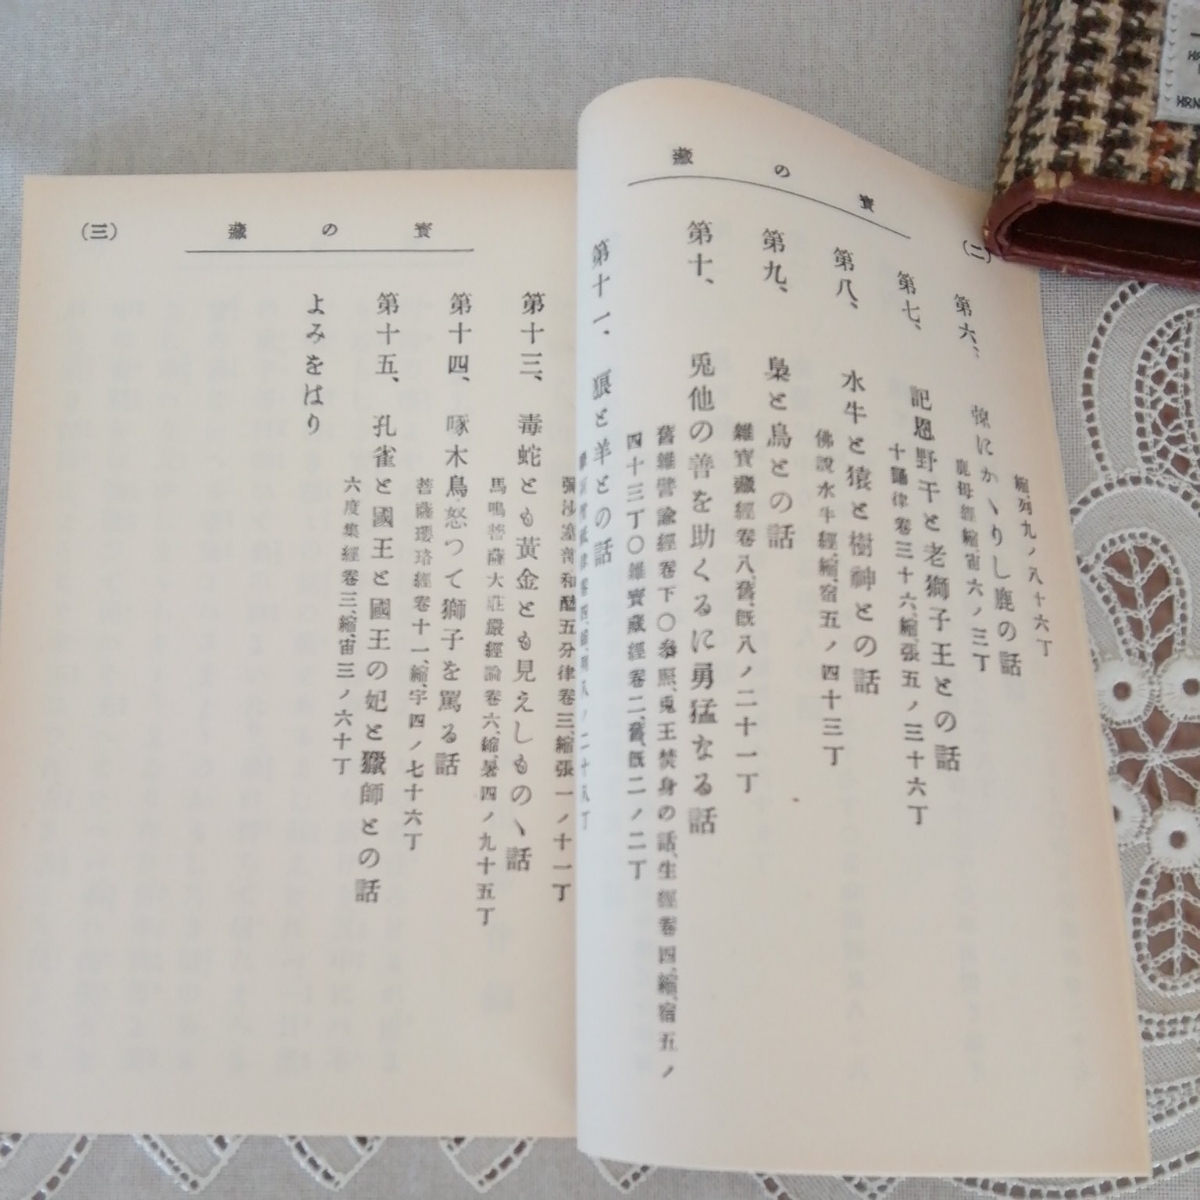 寳の藏
(二)
縮列九ノ八十六丁
第六、 弶にかゝりし鹿の話
鹿母經縮、宙六ノ三丁
第七、 記恩野干と老獅子王との話
十誦律卷三十六、縮、張五ノ三十六丁
第八、 水牛と猿と樹神との話
佛說水牛經、縮、宿五ノ四十三丁
第九、 梟と烏との話
雜寳藏經卷八、舊、旣八ノ二十一丁
第十、 兎他の善を助くるに勇猛なる話
舊雜譬喩經卷下〇參照、兎王焚身の話、生經卷四、縮、宿五ノ
四十三丁〇雜寳藏經卷二、舊、旣二ノ二丁
第十一、 狼と羊との話
寳の藏
(三)
彌沙塞部和醯五分律卷三、縮張一ノ十一丁
第十三、 毒蛇とも黃金とも見えしものゝ話
馬鳴菩薩大莊嚴經論卷六、縮、暑四ノ九十五丁
第十四、 啄木鳥怒つて獅子を罵る話
菩薩瓔珞經卷十一、縮、宇四ノ七十六丁
第十五、 孔雀と國王と國王の妃と獵師との話
六度集經卷三、縮、宙三ノ六十丁
よみをはり